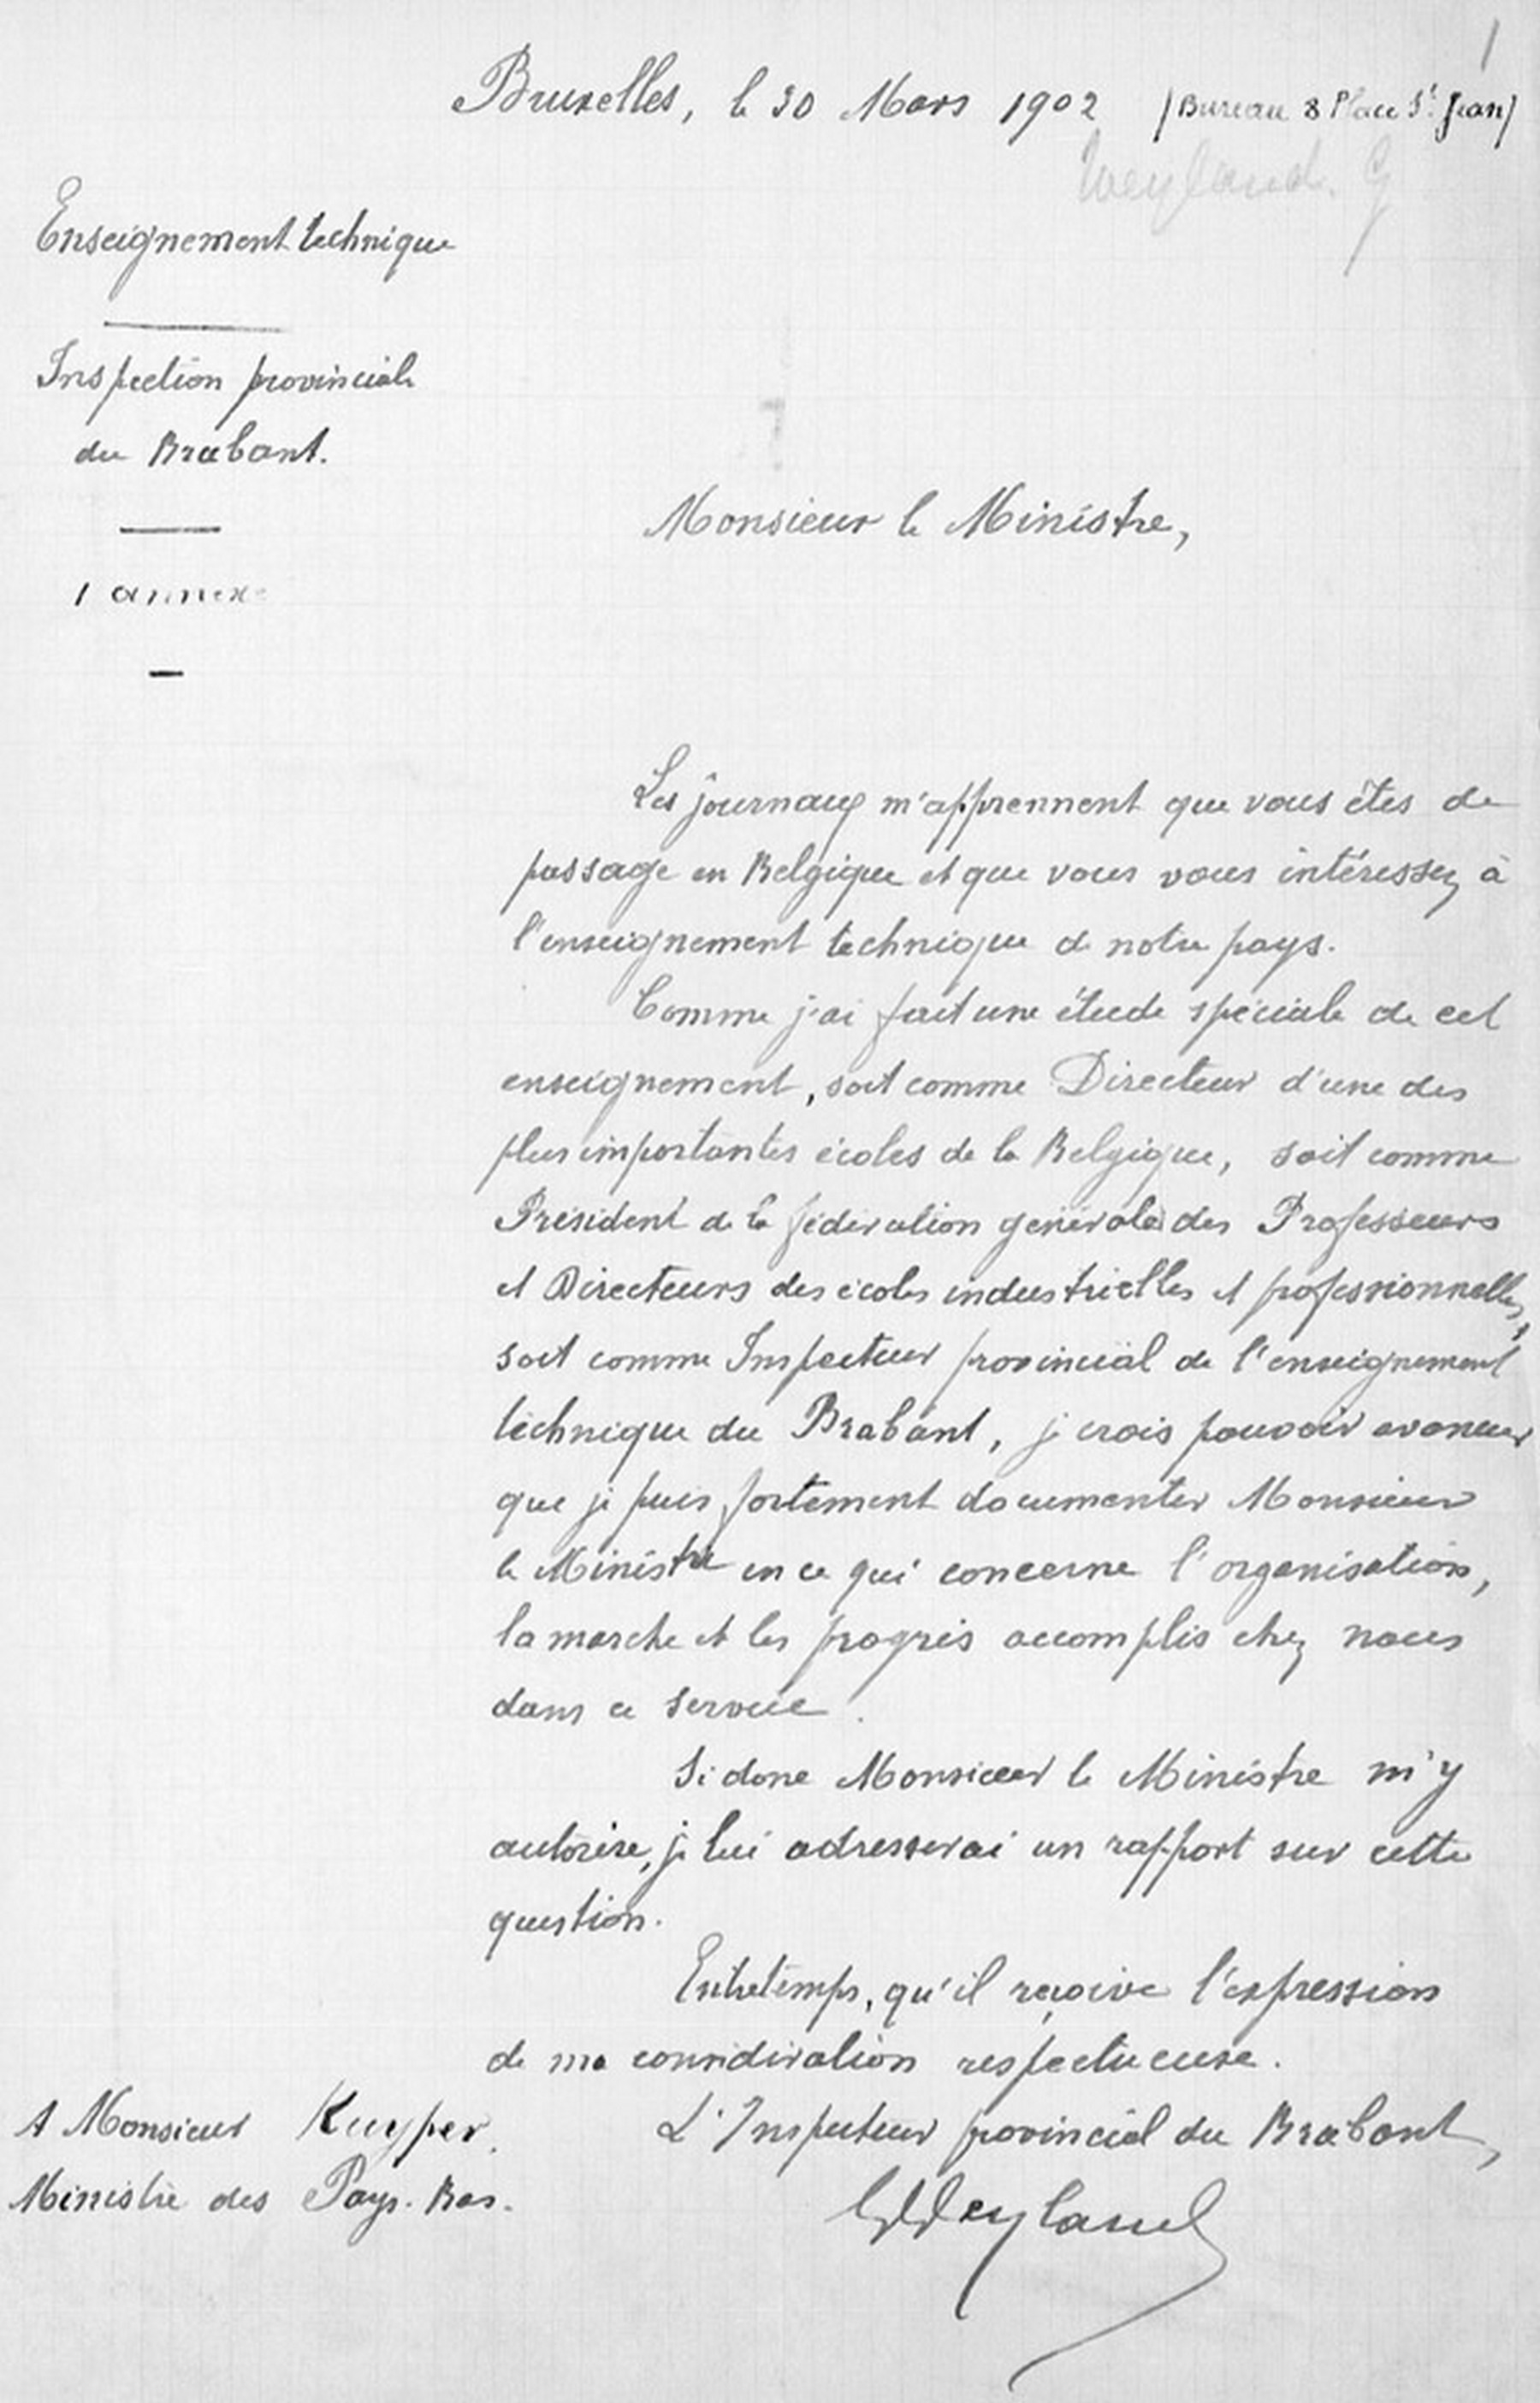 1
Bruxelles, le 30 Mars 1902 (Bureau 8 Place St. Jean)
Weyland. G
Enseignement technique
Inspection provinciale
du Brabant.
1 annexe
Monsieur le Ministre,
Les journaux m'apprennent que vous êtes de
passage en Belgique et que vous vous intéressez à
l'enseignement technique de notre pays.
Comme j'ai fait une étude spéciale de cet
enseignement, soit comme Directeur d'une des
plus importantes écoles de la Belgique, soit comme
Président de la fédération générale des Professeurs
et Directeurs des écoles industrielles et professionnelles,
soit comme Inspecteur provincial de l'enseignement
technique du Brabant, je crois pouvoir avancer
que je puis fortement documenter Monsieur
le Ministre en ce qui concerne l'organisation,
la marche et les progrès accomplis chez nous
dans ce service.
Si donc Monsieur le Ministre m'y
autorise, je lui adresserai un rapport sur cette
question.
Entretemps, qu'il reçoive l'expression
de ma considération respectueuse.
L'Inspecteur provincial du Brabant,
GWeyland
A Monsieur Kuyper.
Ministre des Pays-Bas.